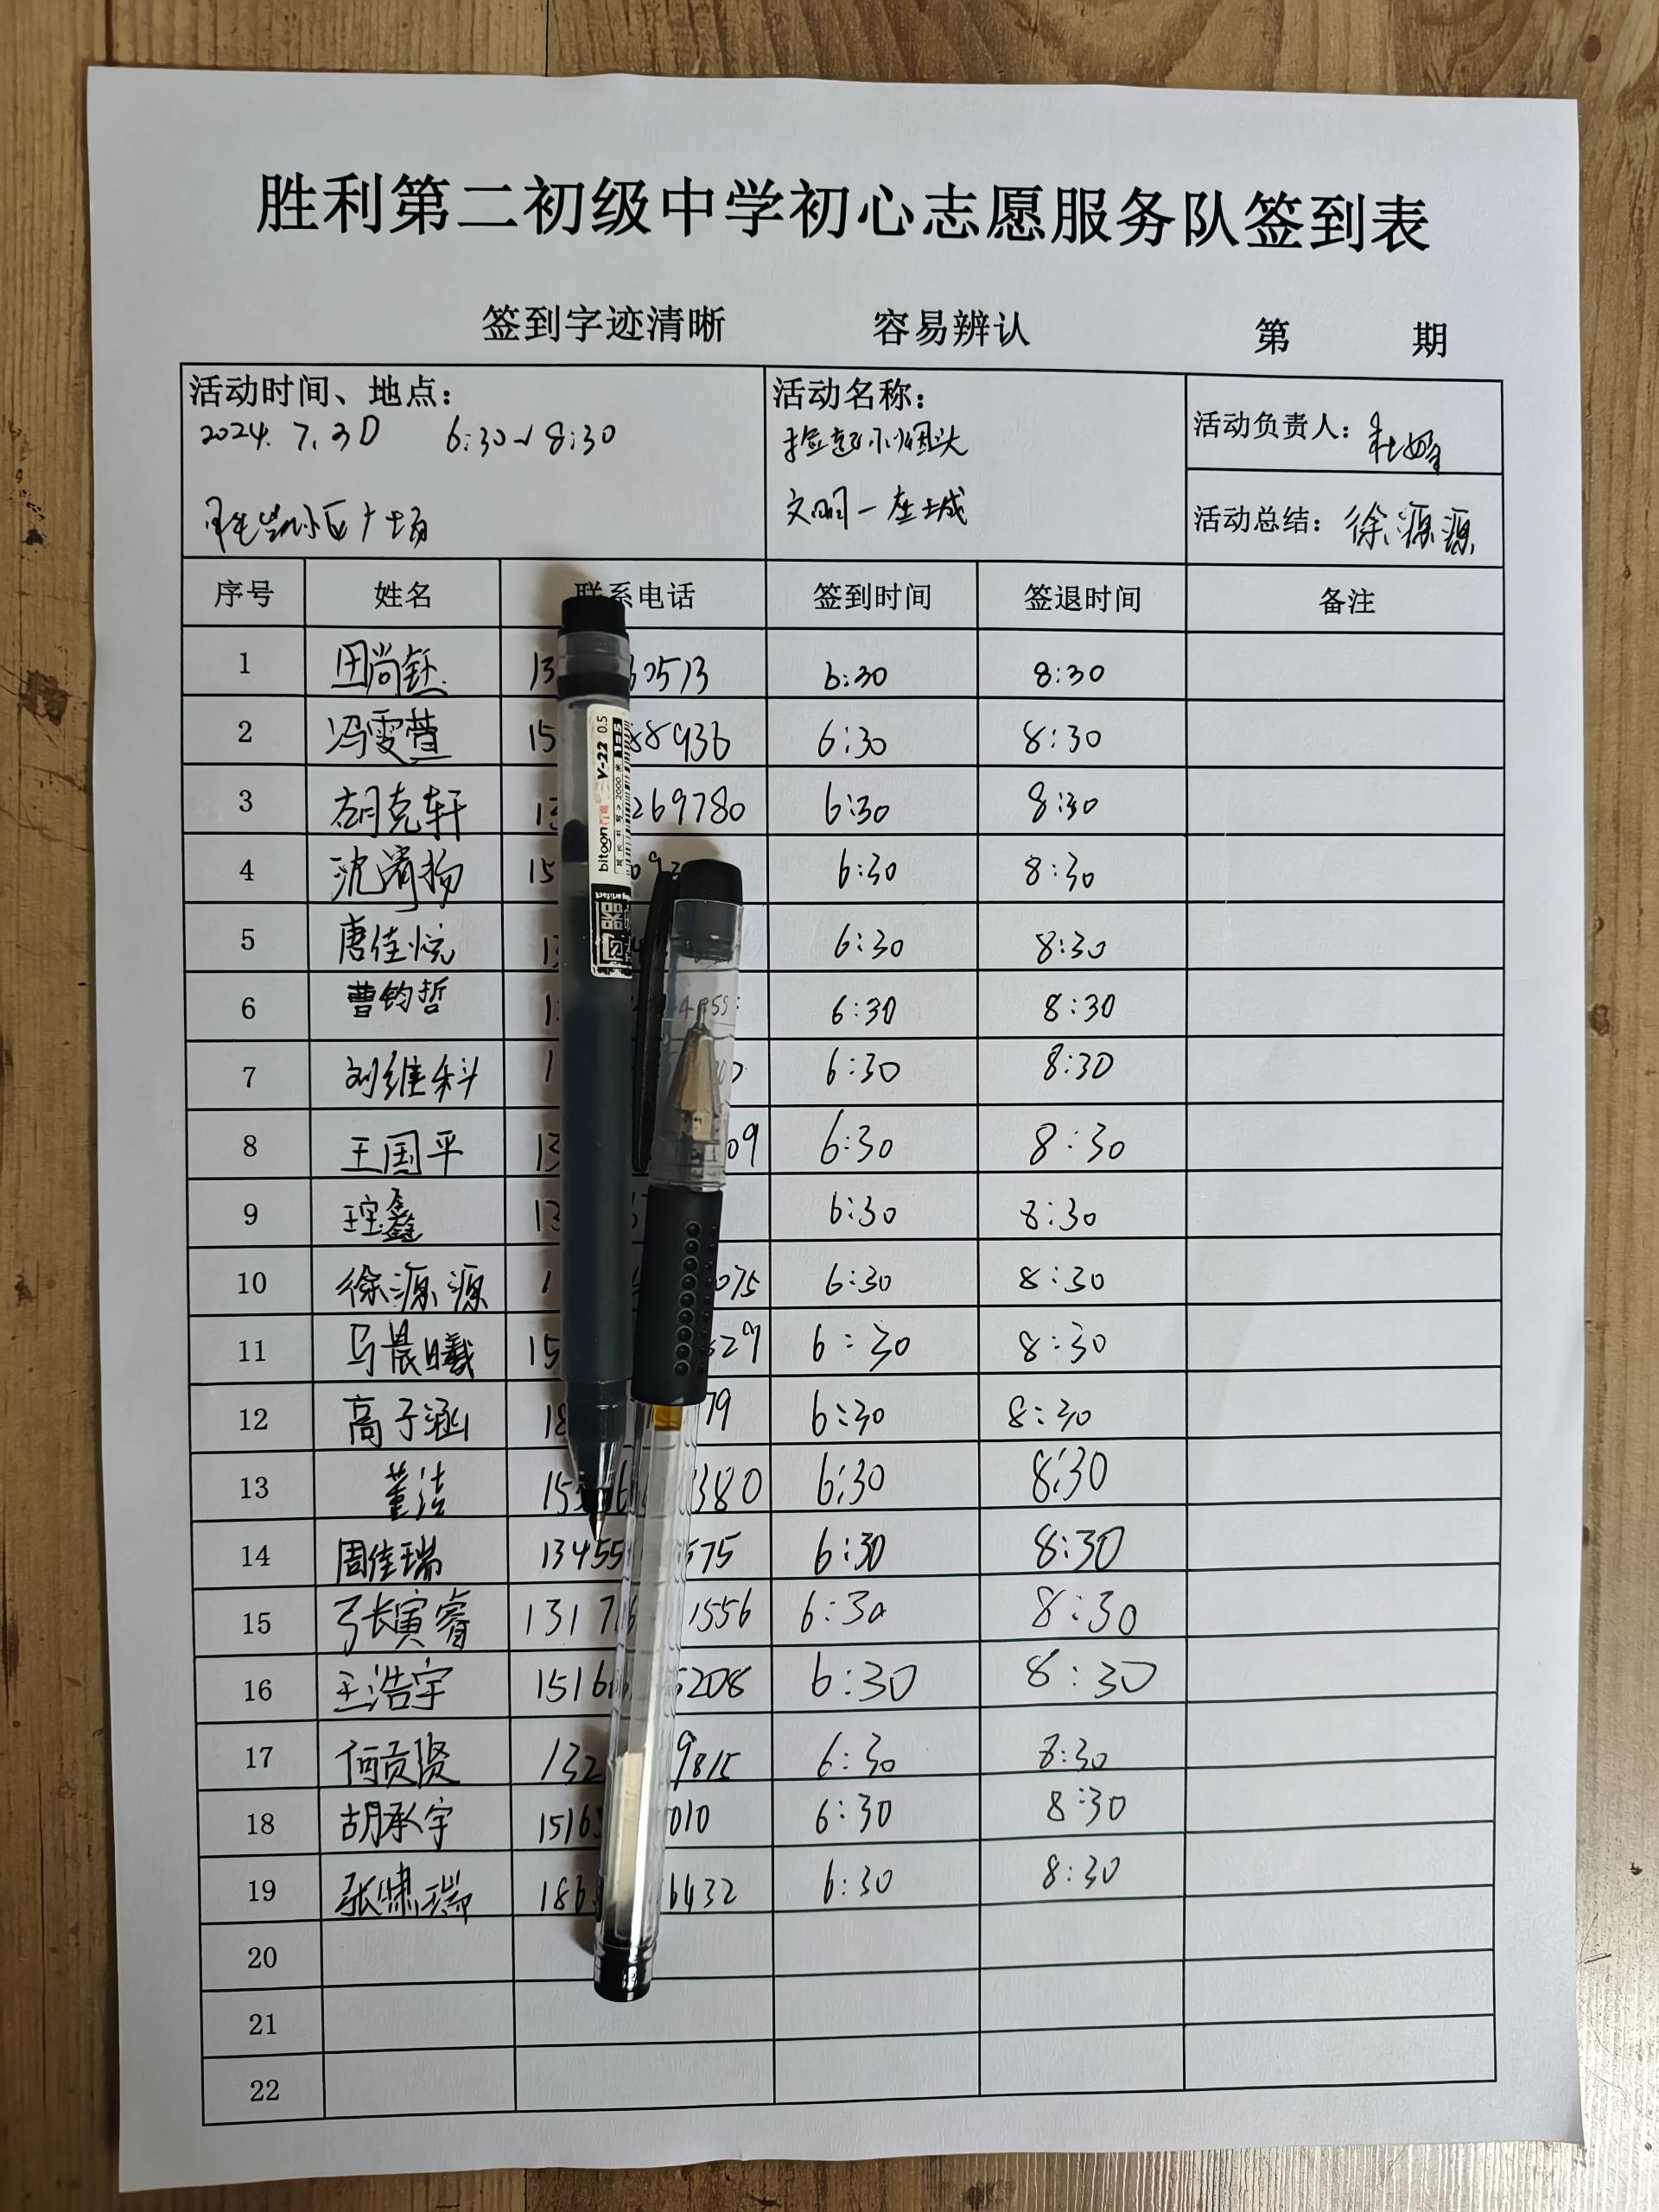 胜利第二初级中学初心志愿服务队签到表
签到字迹清晰 容易辨认 第 期
活动时间、地点: 活动名称: 活动负责人:
2024. 7. 30 6:30~8:30 捡起小烟头
小区广场 文明一座城
活动总结: 徐源源
序号 姓名 联系电话 签到时间 签退时间 备注
1 田尚钰 13 60513 6:30 8:30
2 冯雯萱 15 88936 6:30 8:30
3 胡克轩 13 269780 6:30 8:30
4 沈 扬 15 6:30 8:30
5 唐佳悦 13 6:30 8:30
6 曹钧哲 6:30 8:30
7 刘维科 1 6:30 8:30
8 王国平 13 09 6:30 8:30
9 鑫 13 6:30 8:30
10 徐源源 1 075 6:30 8:30
11 马晨曦 15 529 6:30 8:30
12 高子涵 18 79 6:30 8:30
13 董洁 15 380 6:30 8:30
14 周佳瑞 13455 575 6:30 8:30
15 张寅睿 1317 1556 6:30 8:30
16 王浩宇 1516 5208 6:30 8:30
17 何贡贤 132 9815 6:30 8:30
18 胡承宇 1516 010 6:30 8:30
19 张啸瑞 186 6432 6:30 8:30
20
21
22
bitoon V-22 0.5